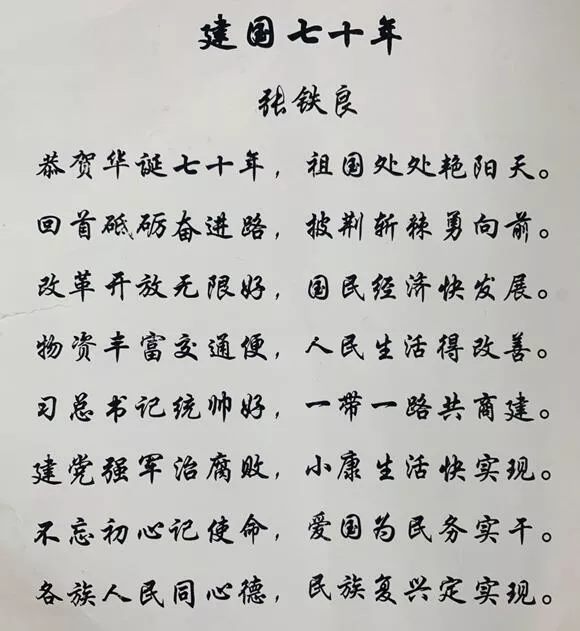 建国七十年
张铁良
恭贺华诞七十年，祖国处处艳阳天。
回首砥砺奋进路，披荆斩棘勇向前。
改革开放无限好，国民经济快发展。
物资丰富交通便，人民生活得改善。
习总书记统帅好，一带一路共商建。
建党强军治腐败，小康生活快实现。
不忘初心记使命，爱国为民务实干。
各族人民同心德，民族复兴定实现。